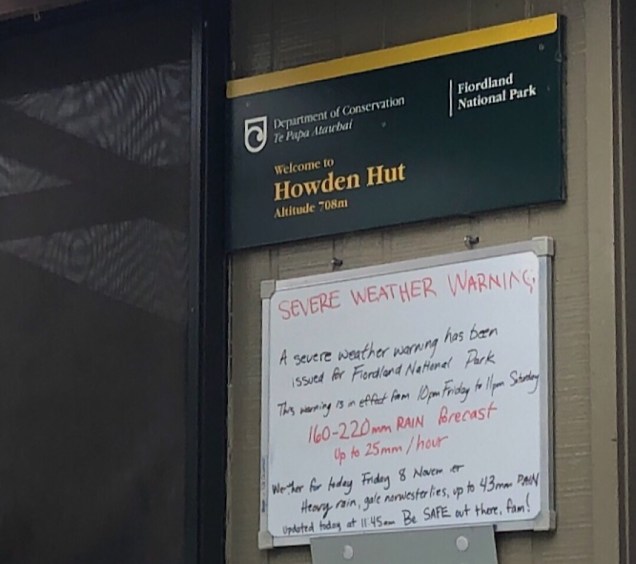 Department of Conservation
Te Papa Atawhai
Fiordland
National Park
Welcome to
Howden Hut
Altitude 708m
SEVERE WEATHER WARNING
A severe weather warning has been
issued for Fiordland National Park
This warning is in effect from 10pm Friday to 11pm Saturday
160-220mm RAIN forecast
Up to 25mm/hour
Weather for today Friday 8 Novem er
Heavy rain, gale norwesterlies, up to 43mm RAIN
Updated today at 11:45am Be SAFE out there, fam!